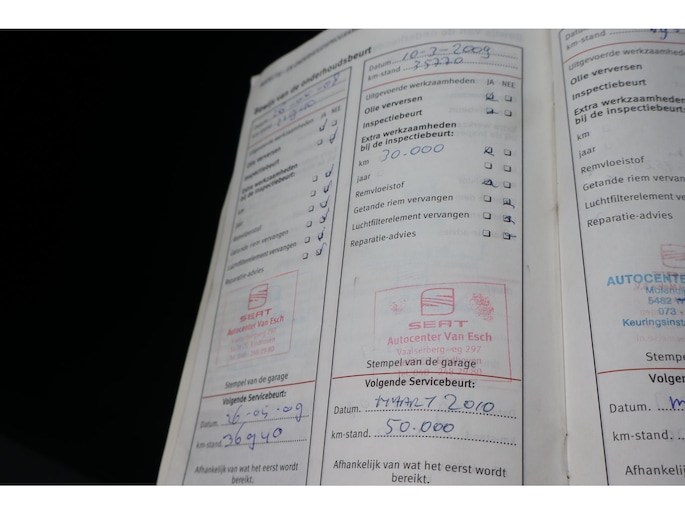 Bewijs van de onderhoudsbeurt
JA NEE
Olie verversen
Inspectiebeurt
Extra werkzaamheden
bij de inspectiebeurt:
km
jaar
Remvloeistof
Getande riem vervangen
Luchtfilterelement vervangen
Reparatie-advies
SEAT
Autocenter Van Esch
Stempel van de garage
Volgende Servicebeurt:
Datum.
km-stand. 36940
Afhankelijk van wat het eerst wordt
bereikt.
Datum 10-3-2009
km-stand 35770
Uitgevoerde werkzaamheden JA NEE
Olie verversen
Inspectiebeurt
Extra werkzaamheden
bij de inspectiebeurt:
km 30.000
jaar
Remvloeistof
Getande riem vervangen
Luchtfilterelement vervangen
Reparatie-advies
SEAT
Autocenter Van Esch
Vaalserbergweg 297
Stempel van de garage
Volgende Servicebeurt:
Datum. MAART 2010
km-stand. 50.000
Afhankelijk van wat het eerst wordt
bereikt.
Datum
km-stand
Uitgevoerde werkzaamhed
Olie verversen
Inspectiebeurt
Extra werkzaamheden
bij de inspectiebeurt:
km
jaar
Remvloeistof
Getande riem vervan
Luchtfilterelement ve
Reparatie-advies
AUTOCENTER
5482
073
Keuringsinst
Stempe
Volgen
Datum. m
km-stand.
Afhankelijk